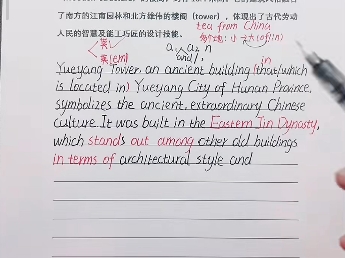 南方的江南园林和北方雄伟的楼阁（tower），体现出了古代劳动
人民的智慧及能工巧匠的设计技能。
tea from China
a., a₂ n
and/,
in
Yueyang Tower, an ancient building (that/which
is located in) Yueyang City of Hunan Province,
symbolizes the ancient, extraordinary Chinese
culture. It was built in the Eastern Jin Dynasty,
which stands out among other old buildings
in terms of architectural style and